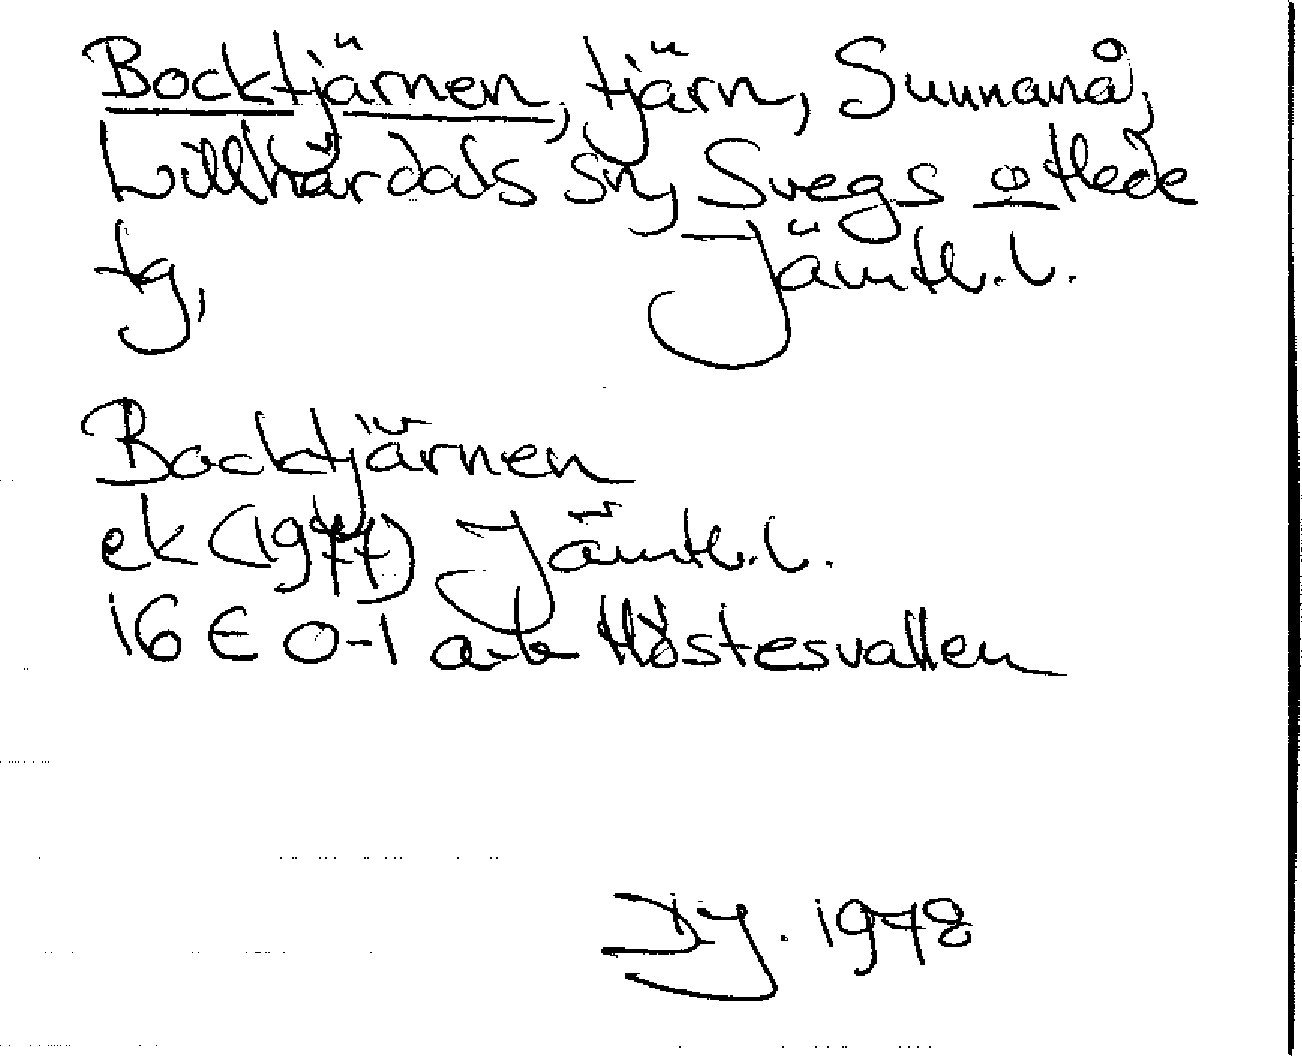 Bocktjärnen, tjärn, Sunnanå,
Lillhärdals sn, Svegs o Hede
tg, Jämtl. l.
Bocktjärnen
ek (1977) Jämtl. l.
16 E 0-1 a-b Höstesvallen
DJ. 1978